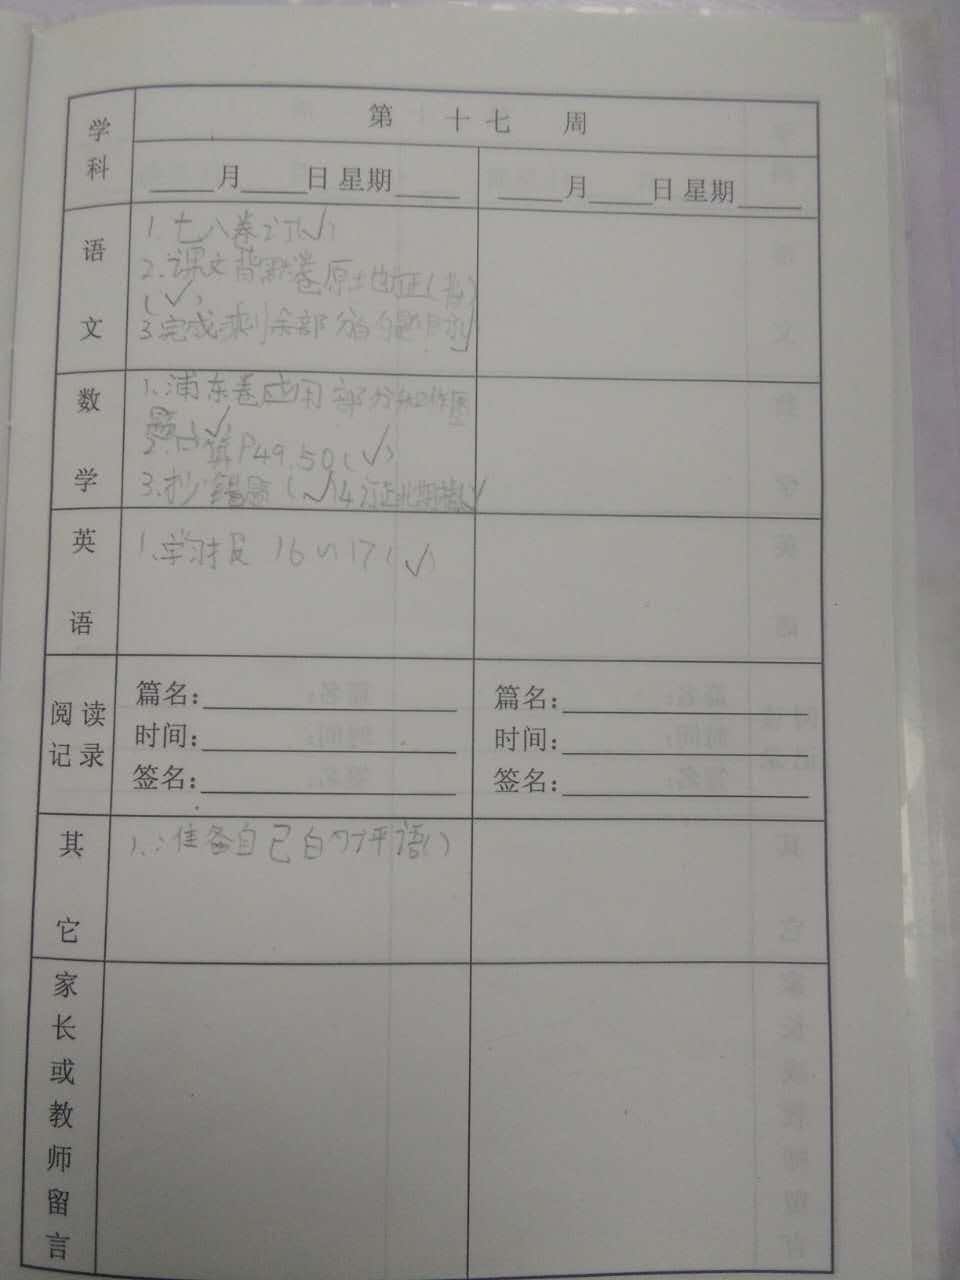 学科
第 十七 周
月 日 星期
月 日 星期
语文
1.七八卷订(✓)
2.课文背默卷原土地证(书)
(✓)
3.完成剩余部分
数学
1.浦东卷应用部分
题(✓)
2.口算P49.50(✓)
3.抄错题(✓)4.订正
英语
1.学习报 16~17(✓)
阅读记录
篇名:
时间:
签名:
篇名:
时间:
签名:
其它
1.准备自己的评语()
家长或教师留言